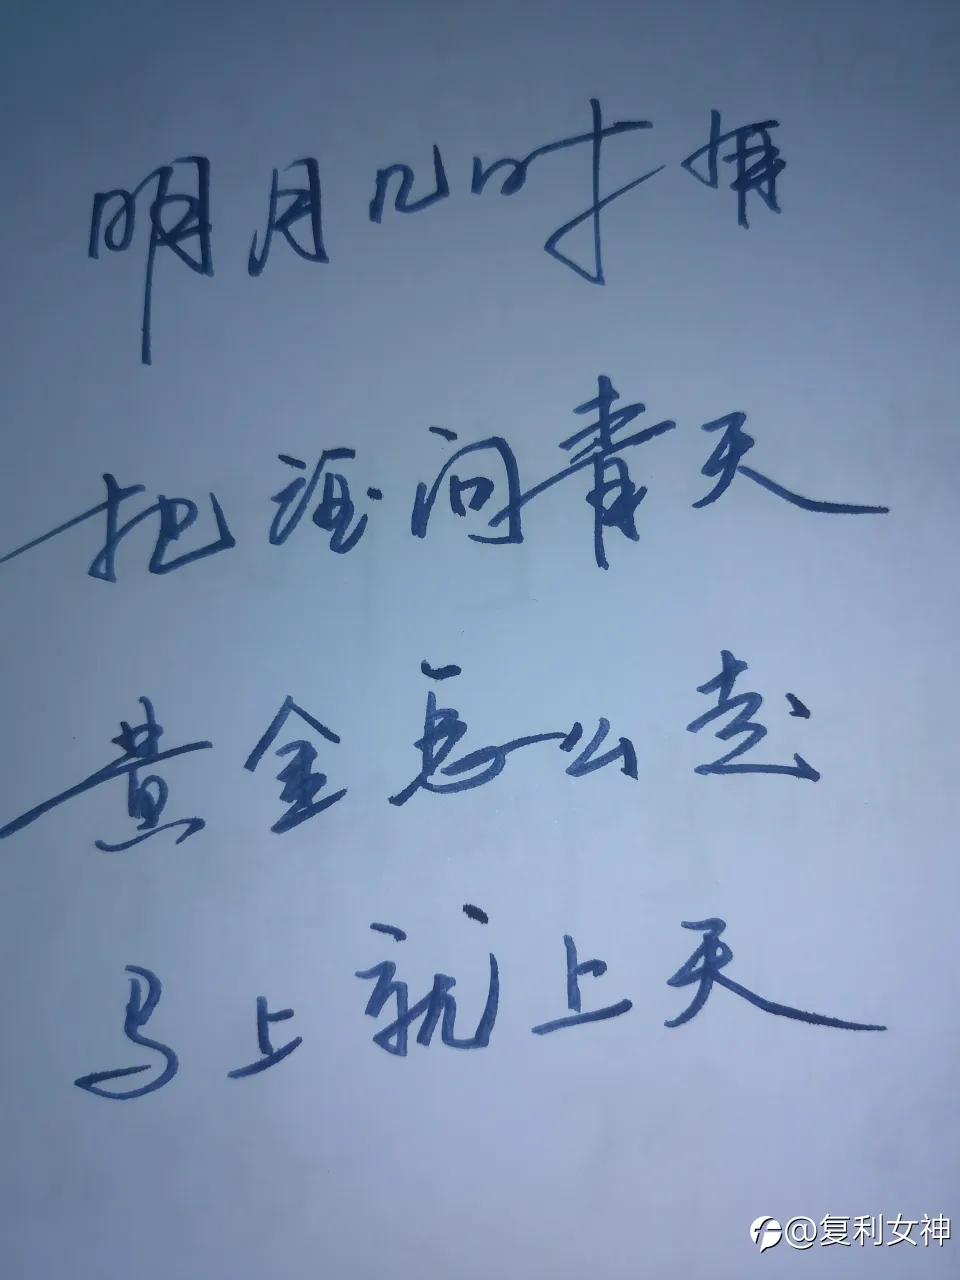 明月几时有
把酒问青天
黄金怎么走
马上就上天
@复利女神